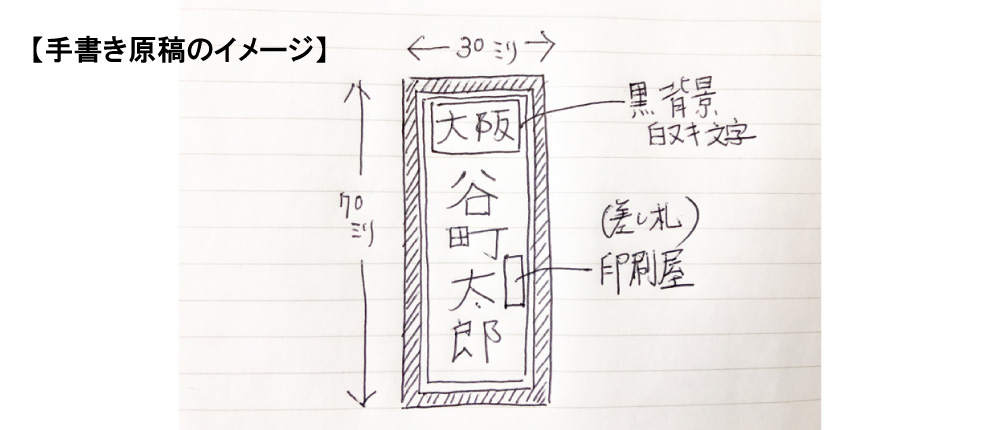 【手書き原稿のイメージ】
30ミリ
70ミリ
大阪
谷町太郎
黒背景
白ヌキ文字
(差し札)
印刷屋